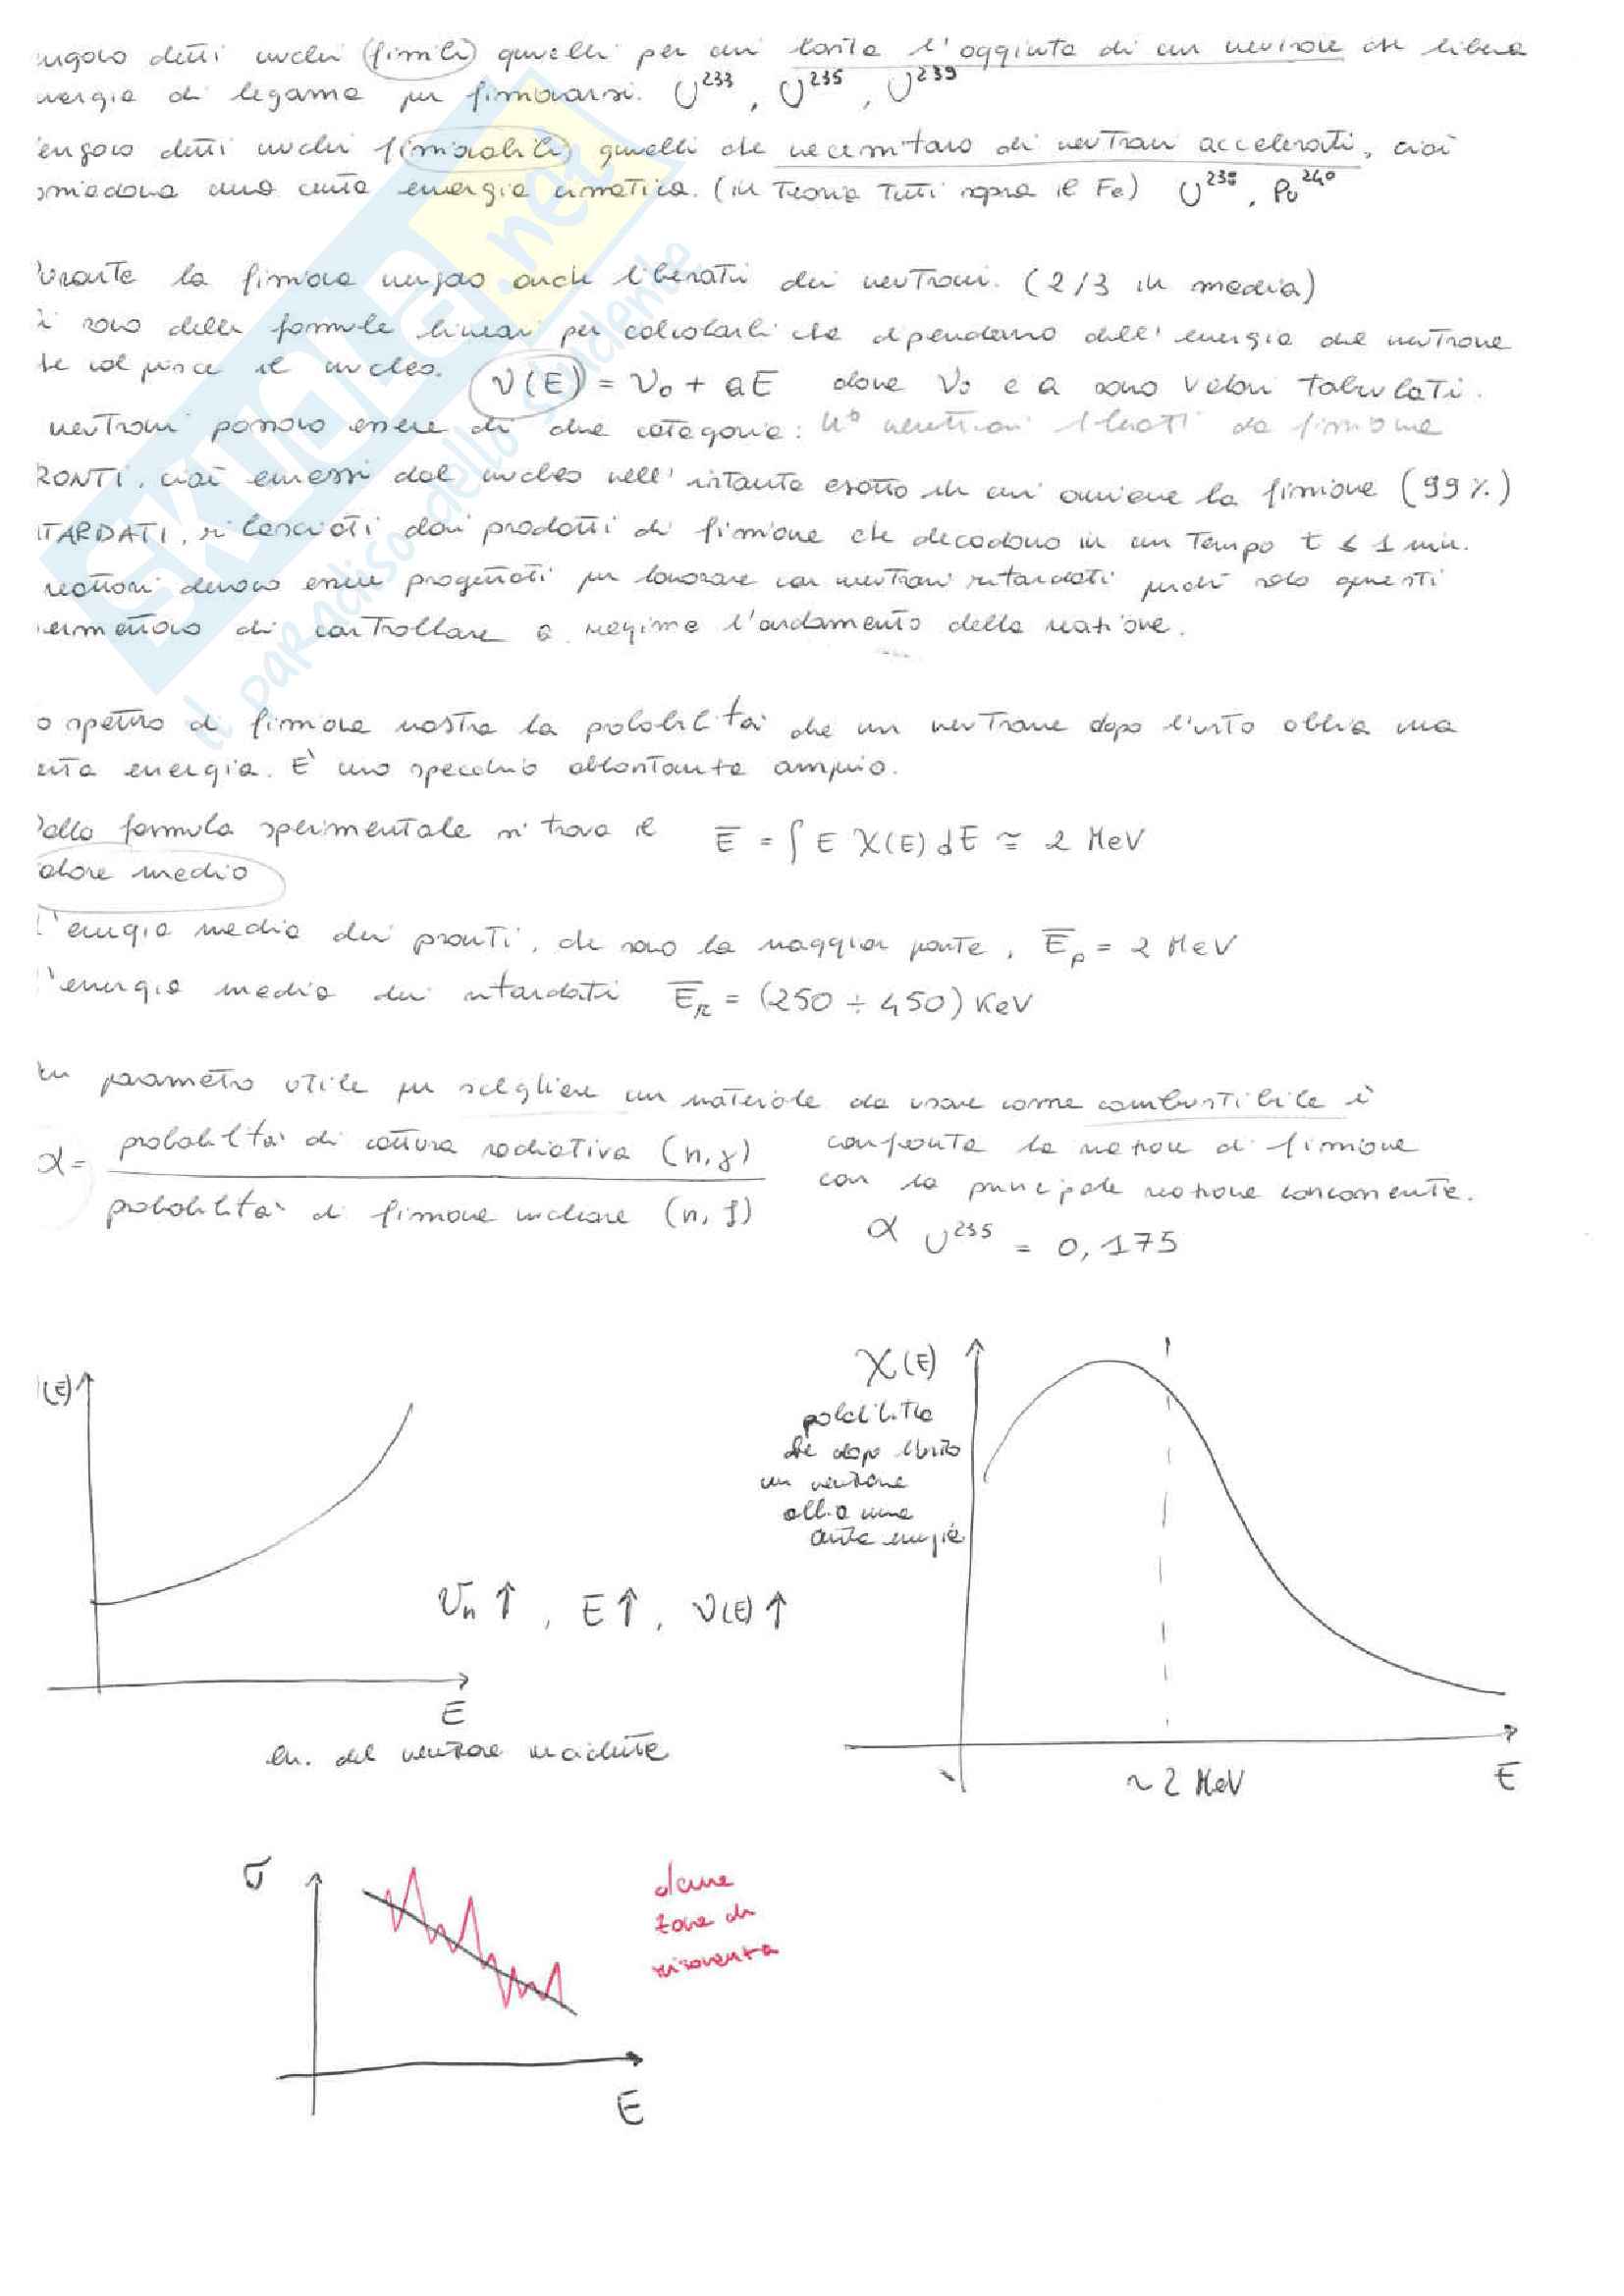 engono detti nuclei (fissili) quelli per cui basta l'aggiunta di un neutrone che libera
nergia di legame per fissionarsi. U²³³, U²³⁵, U²³⁹
engono detti nuclei fissionabili quelli che necessitano di neutroni accelerati, cioè
ossiedono una certa energia cinetica. (in teoria tutti sopra il Fe) U²³⁸, Pu²⁴⁰
urante la fissione vengono anche liberati dei neutroni. (2/3 in media)
i sono delle formule lineari per calcolarli che dipendono dall'energia del neutrone
he colpisce il nucleo. ν(E) = ν₀ + aE dove ν₀ e a sono valori tabulati.
neutroni possono essere di due categorie: n° neutroni liberati da fissione
RONTI, cioè emessi dal nucleo nell'istante esatto in cui avviene la fissione (99%)
ITARDATI, rilasciati dai prodotti di fissione che decadono in un tempo t ≤ 1 min.
reattori devono essere progettati per lavorare con neutroni ritardati perché solo questi
ermettono di controllare a regime l'andamento della reazione.
o spettro di fissione mostra la probabilità che un neutrone dopo l'urto abbia una
erta energia. È uno specchio abbastanza ampio.
Dalla formula sperimentale si trova il E̅ = ∫ E χ(E) dE ≅ 2 MeV
alore medio
L'energia media dei pronti, che sono la maggior parte, E̅p = 2 MeV
L'energia media dei ritardati E̅R = (250 ÷ 450) KeV
Un parametro utile per scegliere un materiale da usare come combustibile è
α = probabilità di cattura radiativa (n,γ) / probabilità di fissione nucleare (n,f)
confronta la reazione di fissione
con la principale reazione concorrente.
α U²³⁵ = 0,175
(E)
E
en. del neutrone incidente
Vn ↑, E ↑, ν(E) ↑
χ(E)
probabilità
che dopo l'urto
un neutrone
abbia una
certa energia
~ 2 MeV
E
σ
E
alcune
zone di
risonanza
SKUOLA.net
il paradiso dello studente